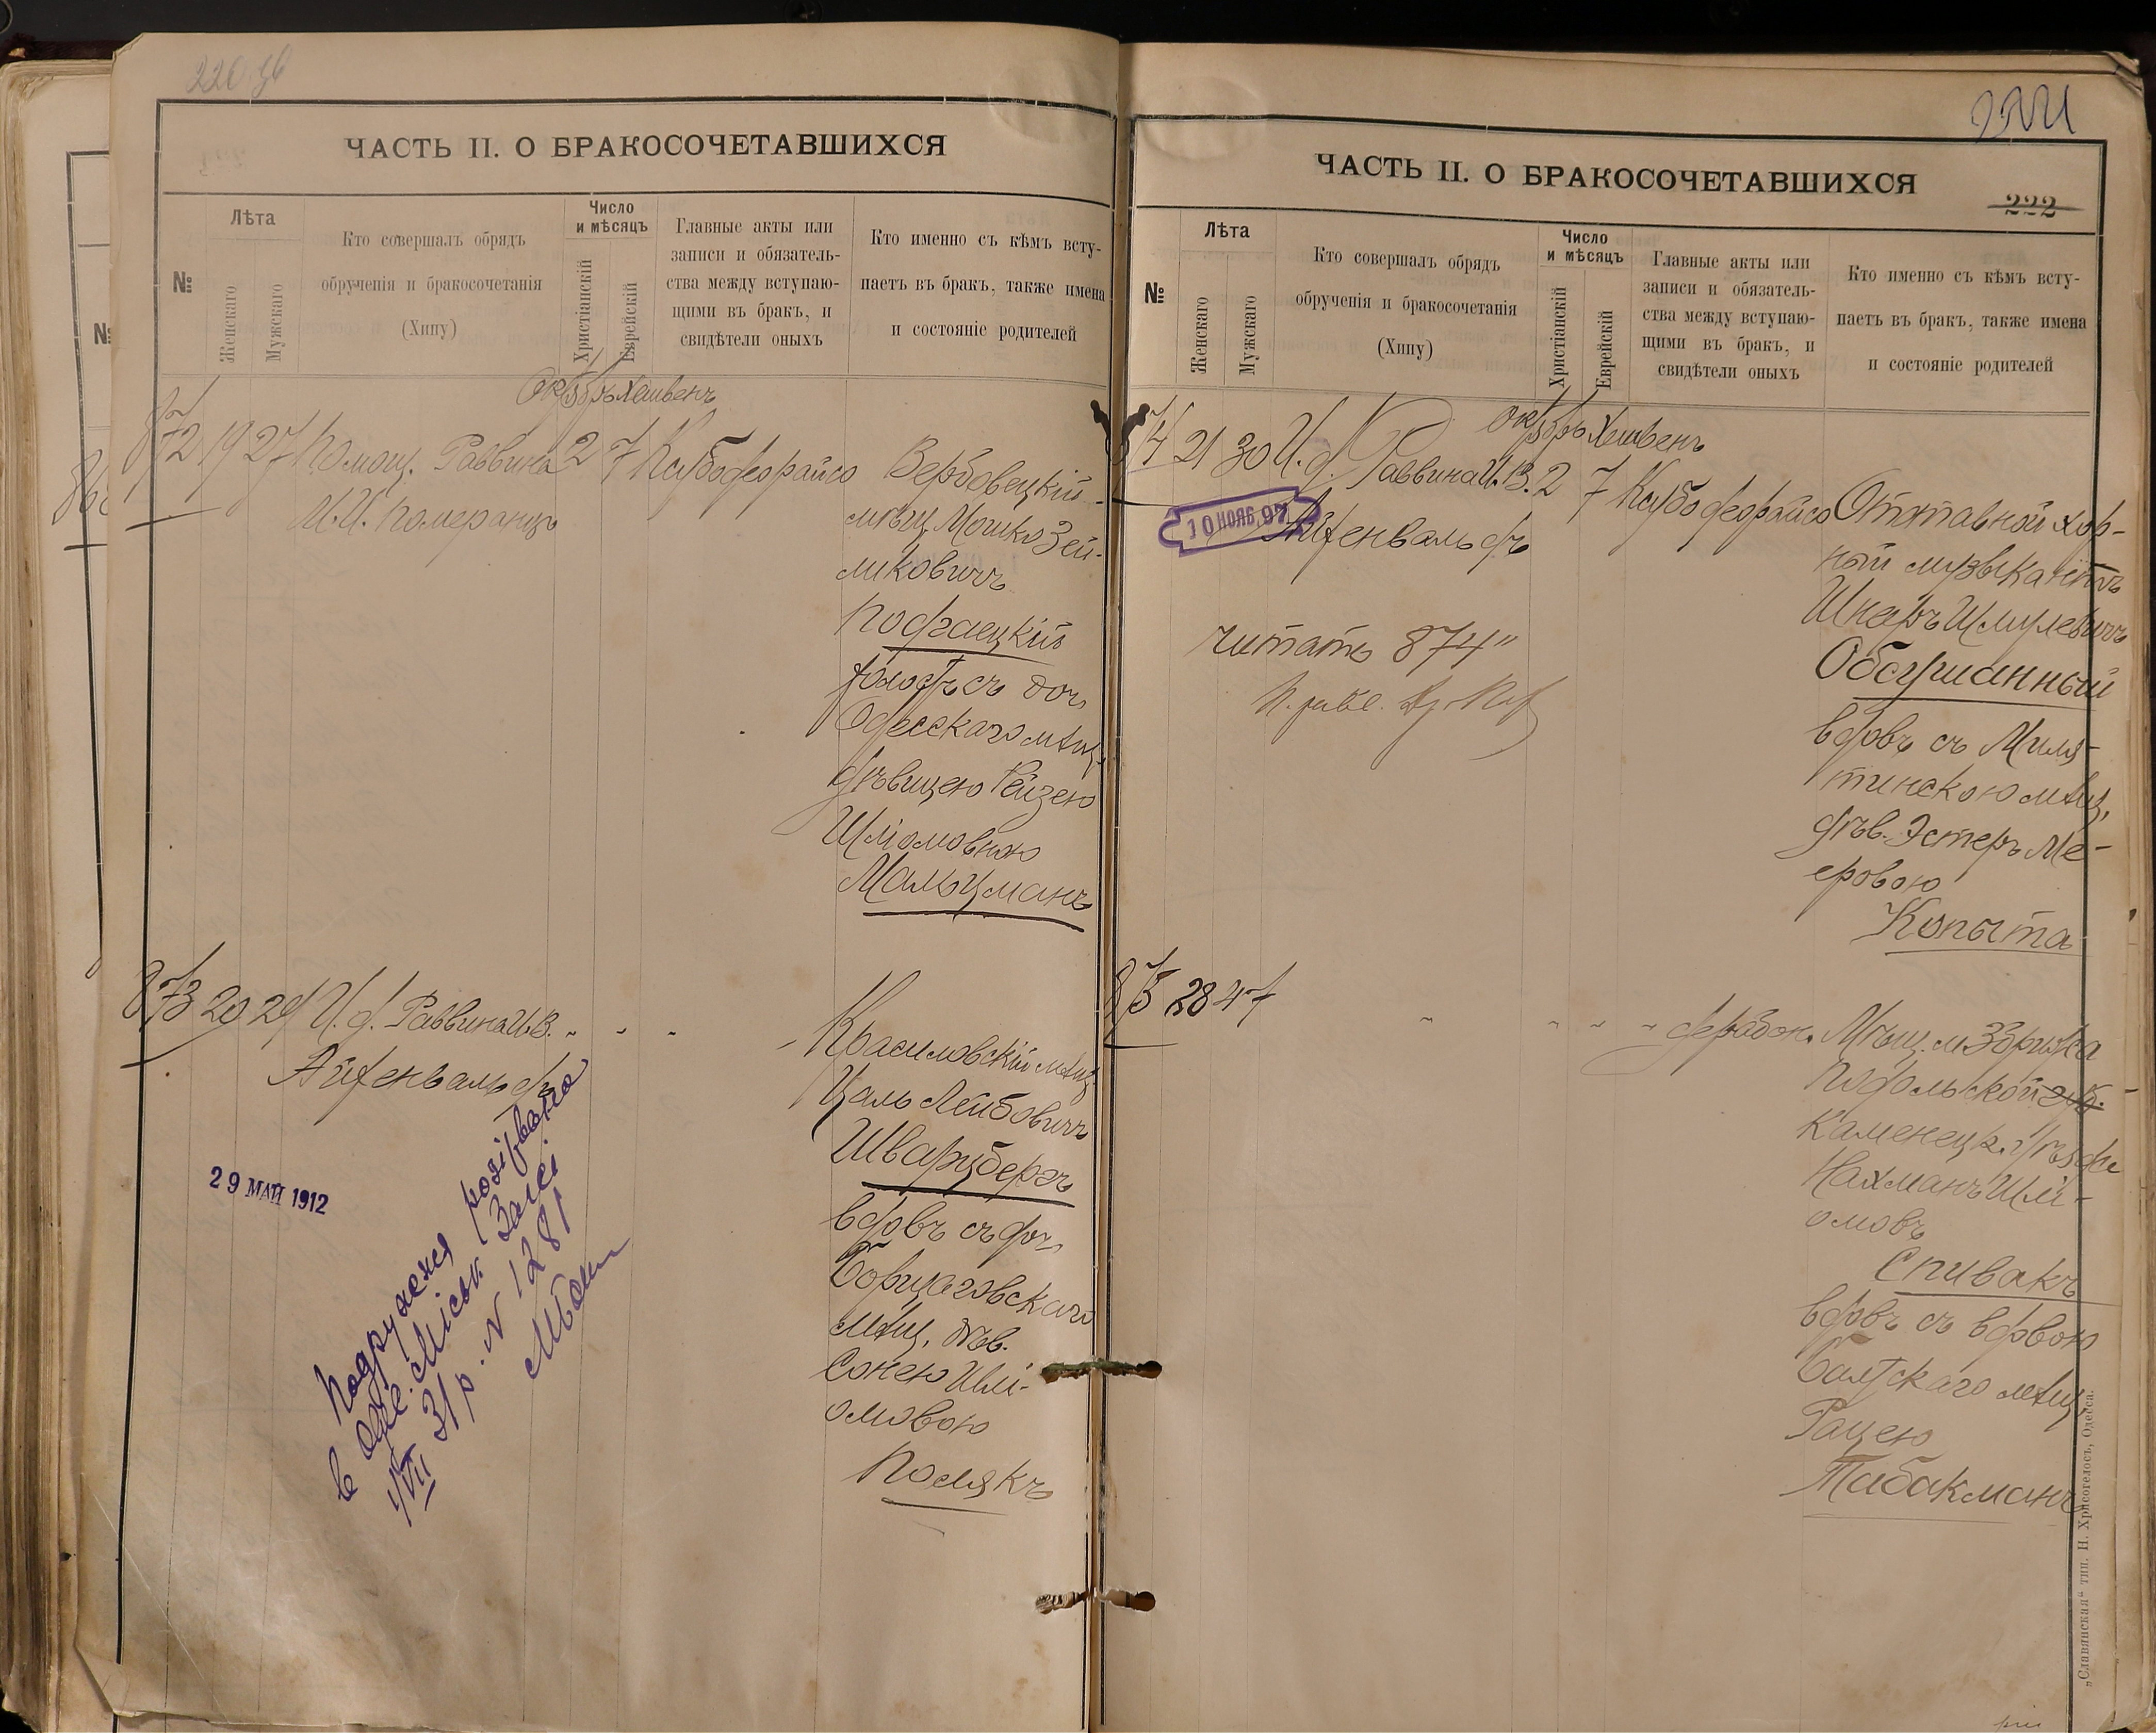 220 зв
ЧАСТЬ II. О БРАКОСОЧЕТАВШИХСЯ
№
Лѣта
Женскаго
Мужскаго
Кто совершалъ обрядъ
обрученія и бракосочетанія
(Хипу)
Число
и мѣсяцъ
Христіанскій
Еврейскій
Главные акты или
записи и обязатель-
ства между вступаю-
щими въ бракъ, и
свидѣтели оныхъ
Кто именно съ кѣмъ всту-
паетъ въ бракъ, также имена
и состояніе родителей
Октябрь Хешвенъ
872 19 27 Помощ. Раввина 2 7
М.И. Померанцъ
Вербовецкій
мѣщ. Мошко Зей-
ликовичъ
Подгаецкій
холостъ съ доч.
Одесскаго мѣщ.
дѣвицею Рейзею
Шліомовною
Мальцманъ
873 20 29 И. д. Раввина И.В. " " "
Айзенвальдъ
29 МАЙ 1912
Красиловскій мѣщ.
Цаль Лейбовичъ
Шварцбергъ
вдовъ съ доч.
Борщаговскаго
мѣщ. дѣв.
Сонею Шлі-
омовою
Полякъ
Подружжя розірвано
в Оде. Міськ. Загсі
1/VII 31 р. N 1281
221
ЧАСТЬ II. О БРАКОСОЧЕТАВШИХСЯ
222
№
Лѣта
Женскаго
Мужскаго
Кто совершалъ обрядъ
обрученія и бракосочетанія
(Хипу)
Число
и мѣсяцъ
Христіанскій
Еврейскій
Главные акты или
записи и обязатель-
ства между вступаю-
щими въ бракъ, и
свидѣтели оныхъ
Кто именно съ кѣмъ всту-
паетъ въ бракъ, также имена
и состояніе родителей
Октябрь Хешвенъ
874 21 30 И. д. Раввина И.В. 2 7
Айзенвальдъ
10 НОЯБ. 97
читать 874"
Отставной хор-
ный музыкантъ
Шнеръ Шмулевичъ
Обсушанный
вдовъ съ Миля-
тинскою мѣщ.
дѣв. Эстеръ Ме-
еровою
Копыта
875 28 47 " " " "
Мѣщ. м. Збрижа
Подольской губ.
Каменецк. уѣзда
Нахманъ Шлі-
омовъ
Спивакъ
вдовъ съ вдовою
Балтскаго мѣщ.
Рацею
Табакманъ
„Славянская" тип. Н. Хрисогелосъ, Одесса.